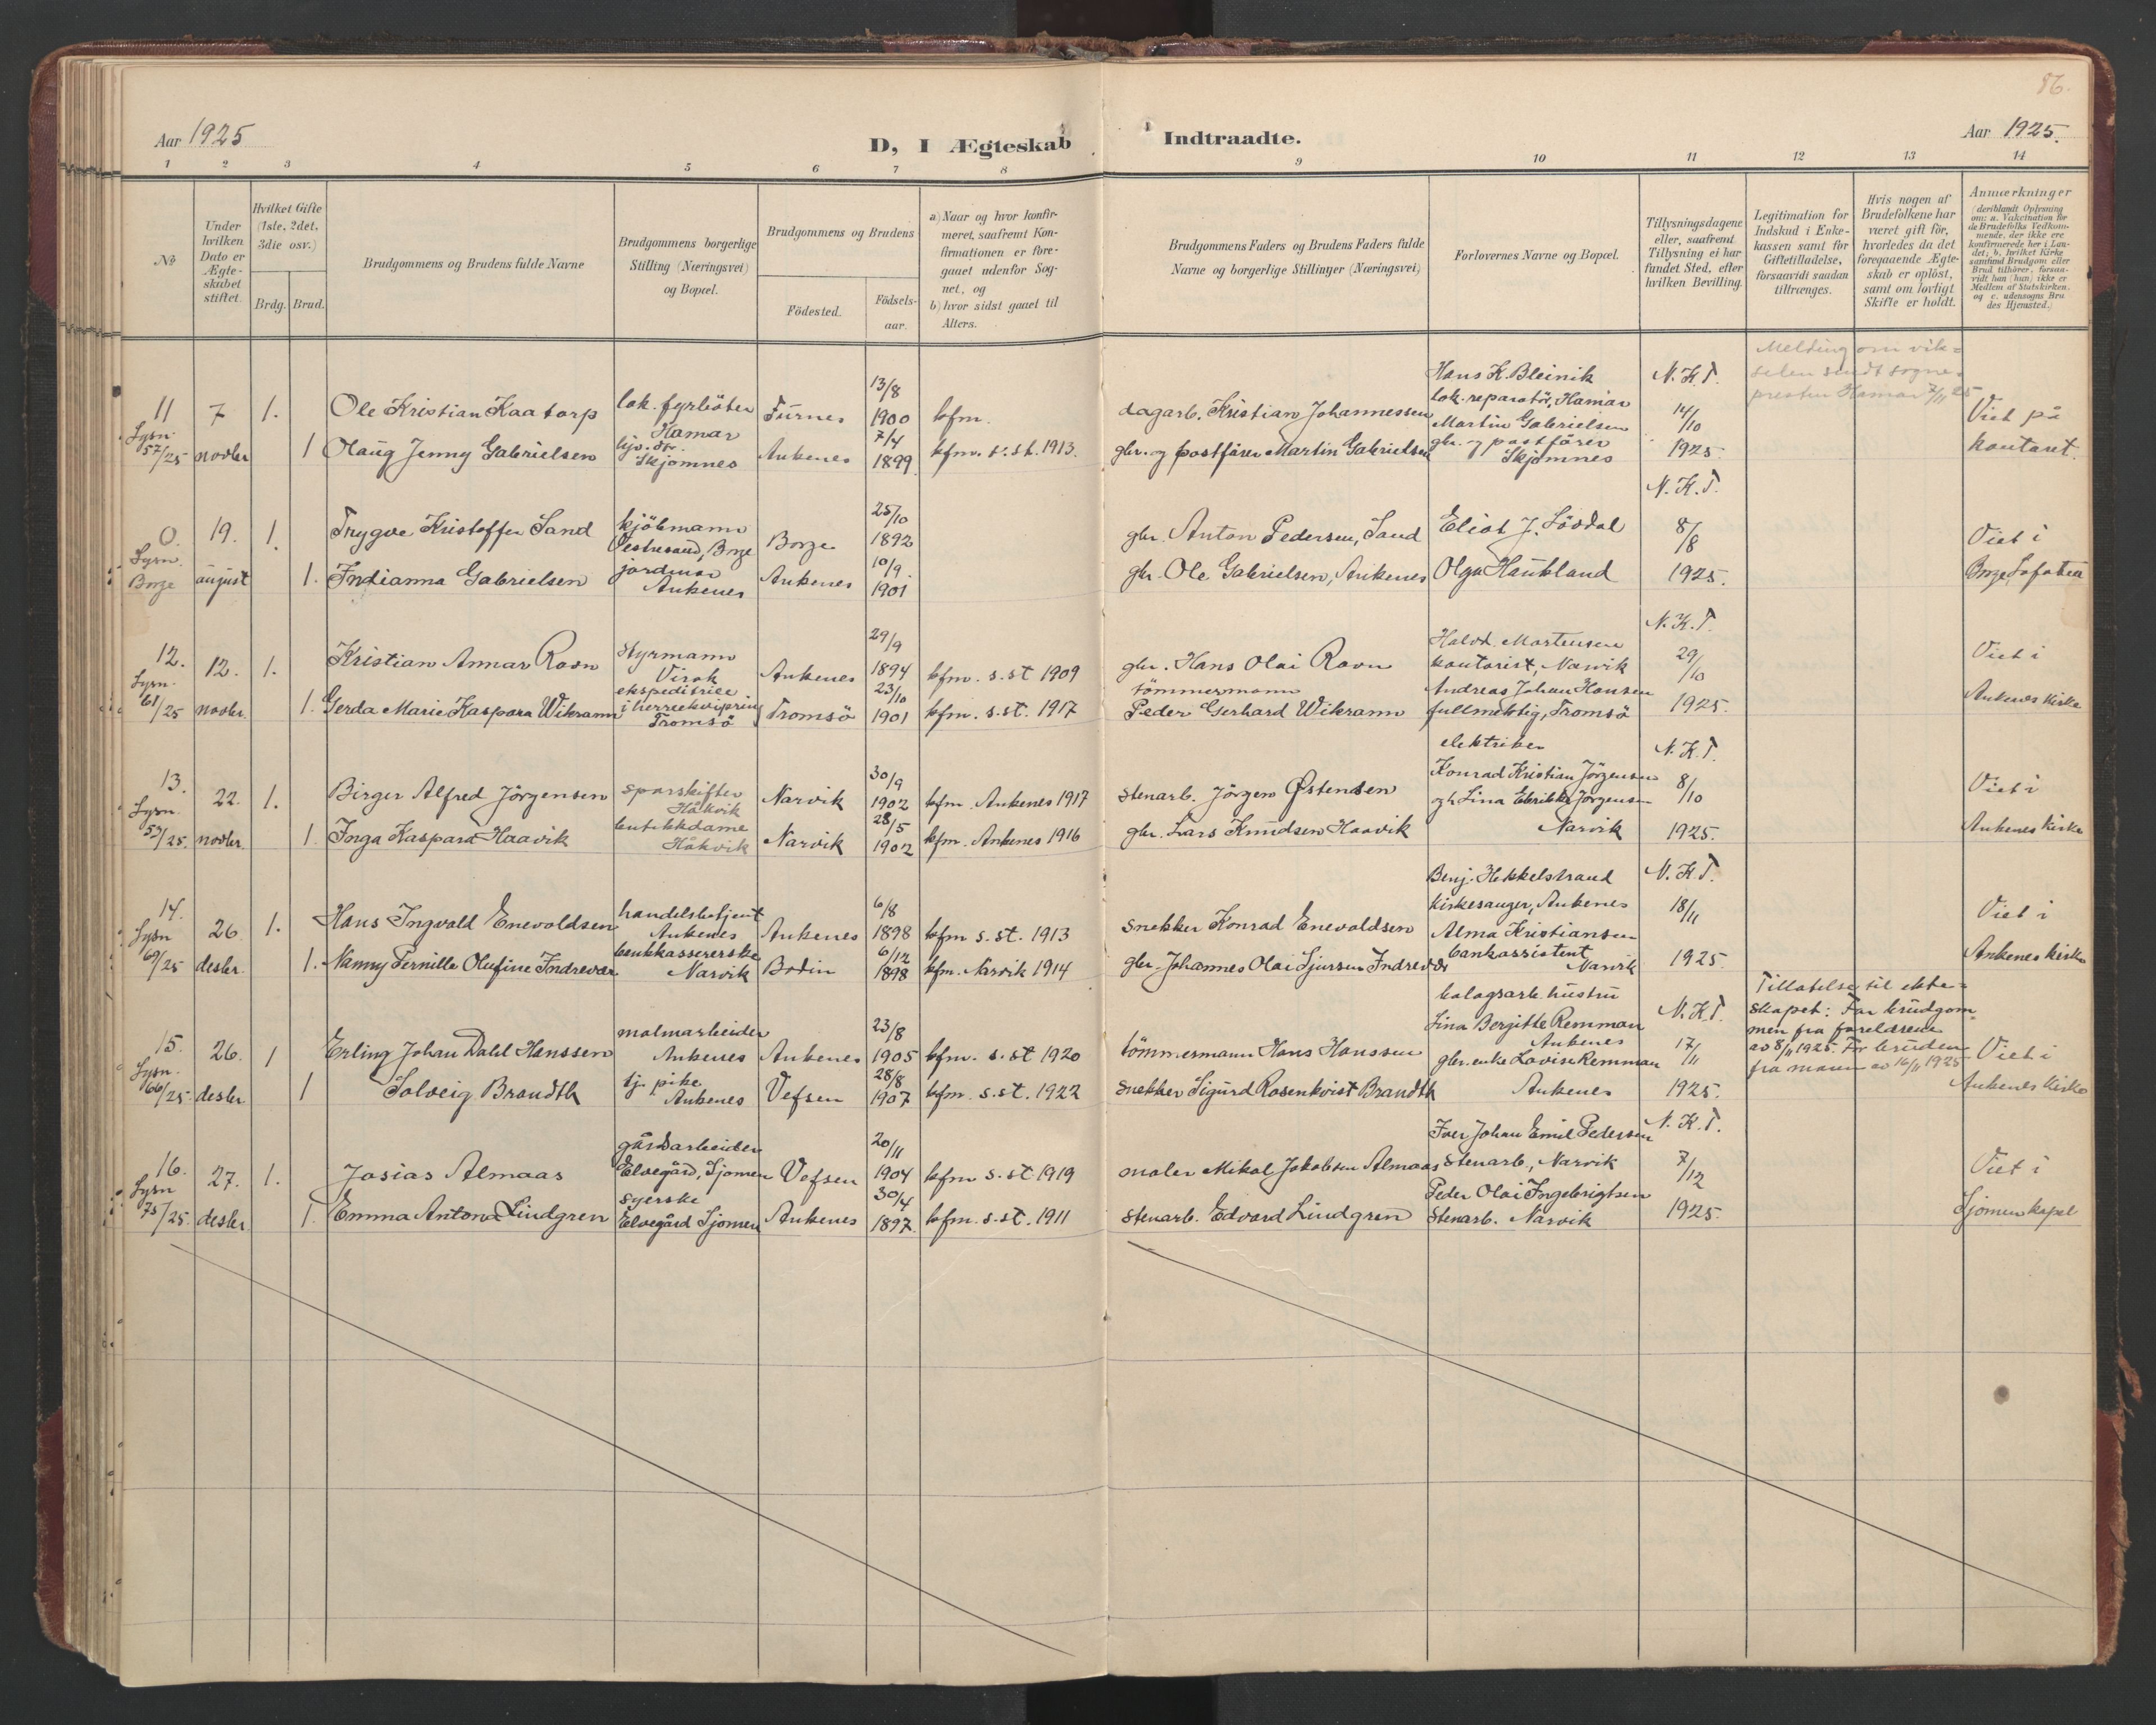 86.
Aar 1925
D, I Ægteskab Indtraadte.
Aar 1925.
1 2 3 4 5 6 7 8 9 10 11 12 13 14
No
Under hvilken Dato er Ægteskabet stiftet.
Hvilket Gifte (1ste, 2det, 3die osv.)
Brdg. Brud.
Brudgommens og Brudens fulde Navne
Brudgommens borgerlige Stilling (Næringsvei) og Bopæl.
Brudgommens og Brudens
Födested.
Födselsaar.
a) Naar og hvor konfirmeret, saafremt Konfirmationen er foregaaet udenfor Sognet, og
b) hvor sidst gaaet til Alters.
Brudgommens Faders og Brudens Faders fulde Navne og borgerlige Stillinger (Næringsvei)
Forlovernes Navne og Bopæl.
Tillysningsdagene eller, saafremt Tillysning ei har fundet Sted, efter hvilken Bevilling.
Legitimation for Indskud i Enkekassen samt for Giftetilladelse, forsaavidt saadan tiltrænges.
Hvis nogen af Brudefolkene har været gift för, hvorledes da det foregaaende Ægteskab er oplöst, samt om lovligt Skifte er holdt.
Anmærkninger (deriblandt Oplysning om: a. Vakcination för de Brudefolks Vedkommende, der ikke ere konfirmerede her i Landet; b. hvilket Kirkesamfund Brudgom eller Brud tilhörer, forsaavidt han (hun) ikke er Medlem af Statskirken. og c. udensogns Brudes Hjemsted.)
11 Lysn. 57/25
7 novbr.
1.
Ole Kristian Kaatorp
lok. fyrböter Hamar
Furnes
13/8 1900
kfm.
dagarb. Kristian Johannessen
Hans K. Bleinik
lok. reparatör, Hamar
N.K.T. 14/10 1925.
Melding om vikselen sendt sognepresten Hamar 7/11 25
Viet på kontoret.
1 Olaug Jenny Gabrielsen
Skjomnes
Ankenes
7/4 1899
kfm. s.st. 1913.
gbr. og postförer Martin Gabrielsen
Martin Gabrielsen
gbr. og postförer Skjomnes
0. Lysn. Borge
19. august
1.
Trygve Kristoffer Sand
kjöbmann Vestresand, Borge
Borge
25/10 1892
gbr. Anton Pedersen, Sand
Eliot J. Lövdal
N.K.T. 8/8 1925.
Viet i Borge, Lofoten
1. Indianna Gabrielsen
jordmor Ankenes
Ankenes
10/9. 1901
gbr. Ole Gabrielsen, Ankenes
Olga Haukland
12. Lysn. 61/25
12. novbr.
1.
Kristian Annar Ravn
Styrmann Virak
Ankenes
29/9 1894
kfm. s.st 1909
gbr. Hans Olai Ravn
Halvd. Martensen
kontorist, Narvik
N.K.T. 29/10 1925.
Viet i Ankenes Kirke
1. Gerda Marie Kaspara Wikramn
ekspeditrice i herreekvipring Tromsö
Tromsö
23/10 1901
kfm. s.st. 1917
tömmermann Peder Gerhard Wikramn
Andreas Johan Hansen
fullmektig, Tromsö
13. Lysn. 59/25.
22. novbr.
1.
Birger Alfred Jörgensen
sporskifter Håkvik
Narvik
30/9 1902
kfm. Ankenes 1917
Stenarb. Jörgen Östensen
elektriker
Konrad Kristian Jörgensen
N.K.T. 8/10 1925.
Viet i Ankenes Kirke
1 Inga Kaspara Haavik
butikkdame Håkvik
Narvik
28/5 1902
kfm. Ankenes 1916
gbr. Lars Knudsen Haavik
og Lina Elrikka Jörgensen
Narvik
14. Lysn 69/25
26 desbr.
1.
Hans Ingvald Enevoldsen
handelsbetjent Ankenes
Ankenes
6/8 1898
kfm s.st. 1913
Snekker Konrad Enevoldsen
Benj. Hekkelstrand
kirkesanger, Ankenes
N.K.T. 18/11 1925.
Viet i Ankenes kirke
1. Nanny Pernille Olufine Indrevær
bankkassererske Narvik
Bodin
6/12 1898
kfm. Narvik 1914
gbr. Johannes Olai Sjursen Indrevær
Alma Kristiansen
bankassistent Narvik
15. Lysn. 66/25.
26. desbr.
1
Erling Johan Dahl Hanssen
malmarbeider Ankenes
Ankenes
23/8 1905
kfm. s.st 1920
tömmermann Hans Hanssen
bolagsarb. hustru
Lina Bergitte Remman
Ankenes
N.K.T. 17/11 1925.
Tillatelse til ekteskapet: For brudgommen fra foreldrene av 8/11 1925. For bruden fra moren av 16/11 1925
Viet i Ankenes Kirke
1 Solveig Brandth
tj. pike Ankenes
Vefsen
28/8 1907
kfm. s.st. 1922
Snekker Sigurd Rosenkvist Brandth
gbr. enke Lovise Remman
Ankenes
16. Lysn 75/25.
27. desbr.
1.
Josias Almaas
gårdsarbeider Elvegård, Sjomen
Vefsen
20/11 1904
kfm s.st 1919
maler Mikal Jakobsen Almaas
Iver Johan Emil Pedersen
Stenarb., Narvik
N.K.T. 7/12 1925.
Viet i Sjomen kapel
1. Emma Antona Lindgren
syerske Elvegård Sjomen
Ankenes
30/4 1897.
kfm. s.st. 1911
Stenarb. Edvard Lindgren
Peder Olai Ingebrigtsen
Stenarb. Narvik